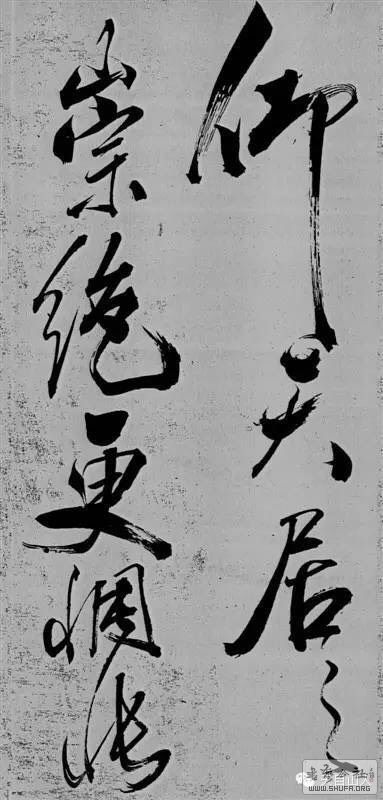 仰天居之
崇絕更惆悵
WWW.SHUFA.ORG